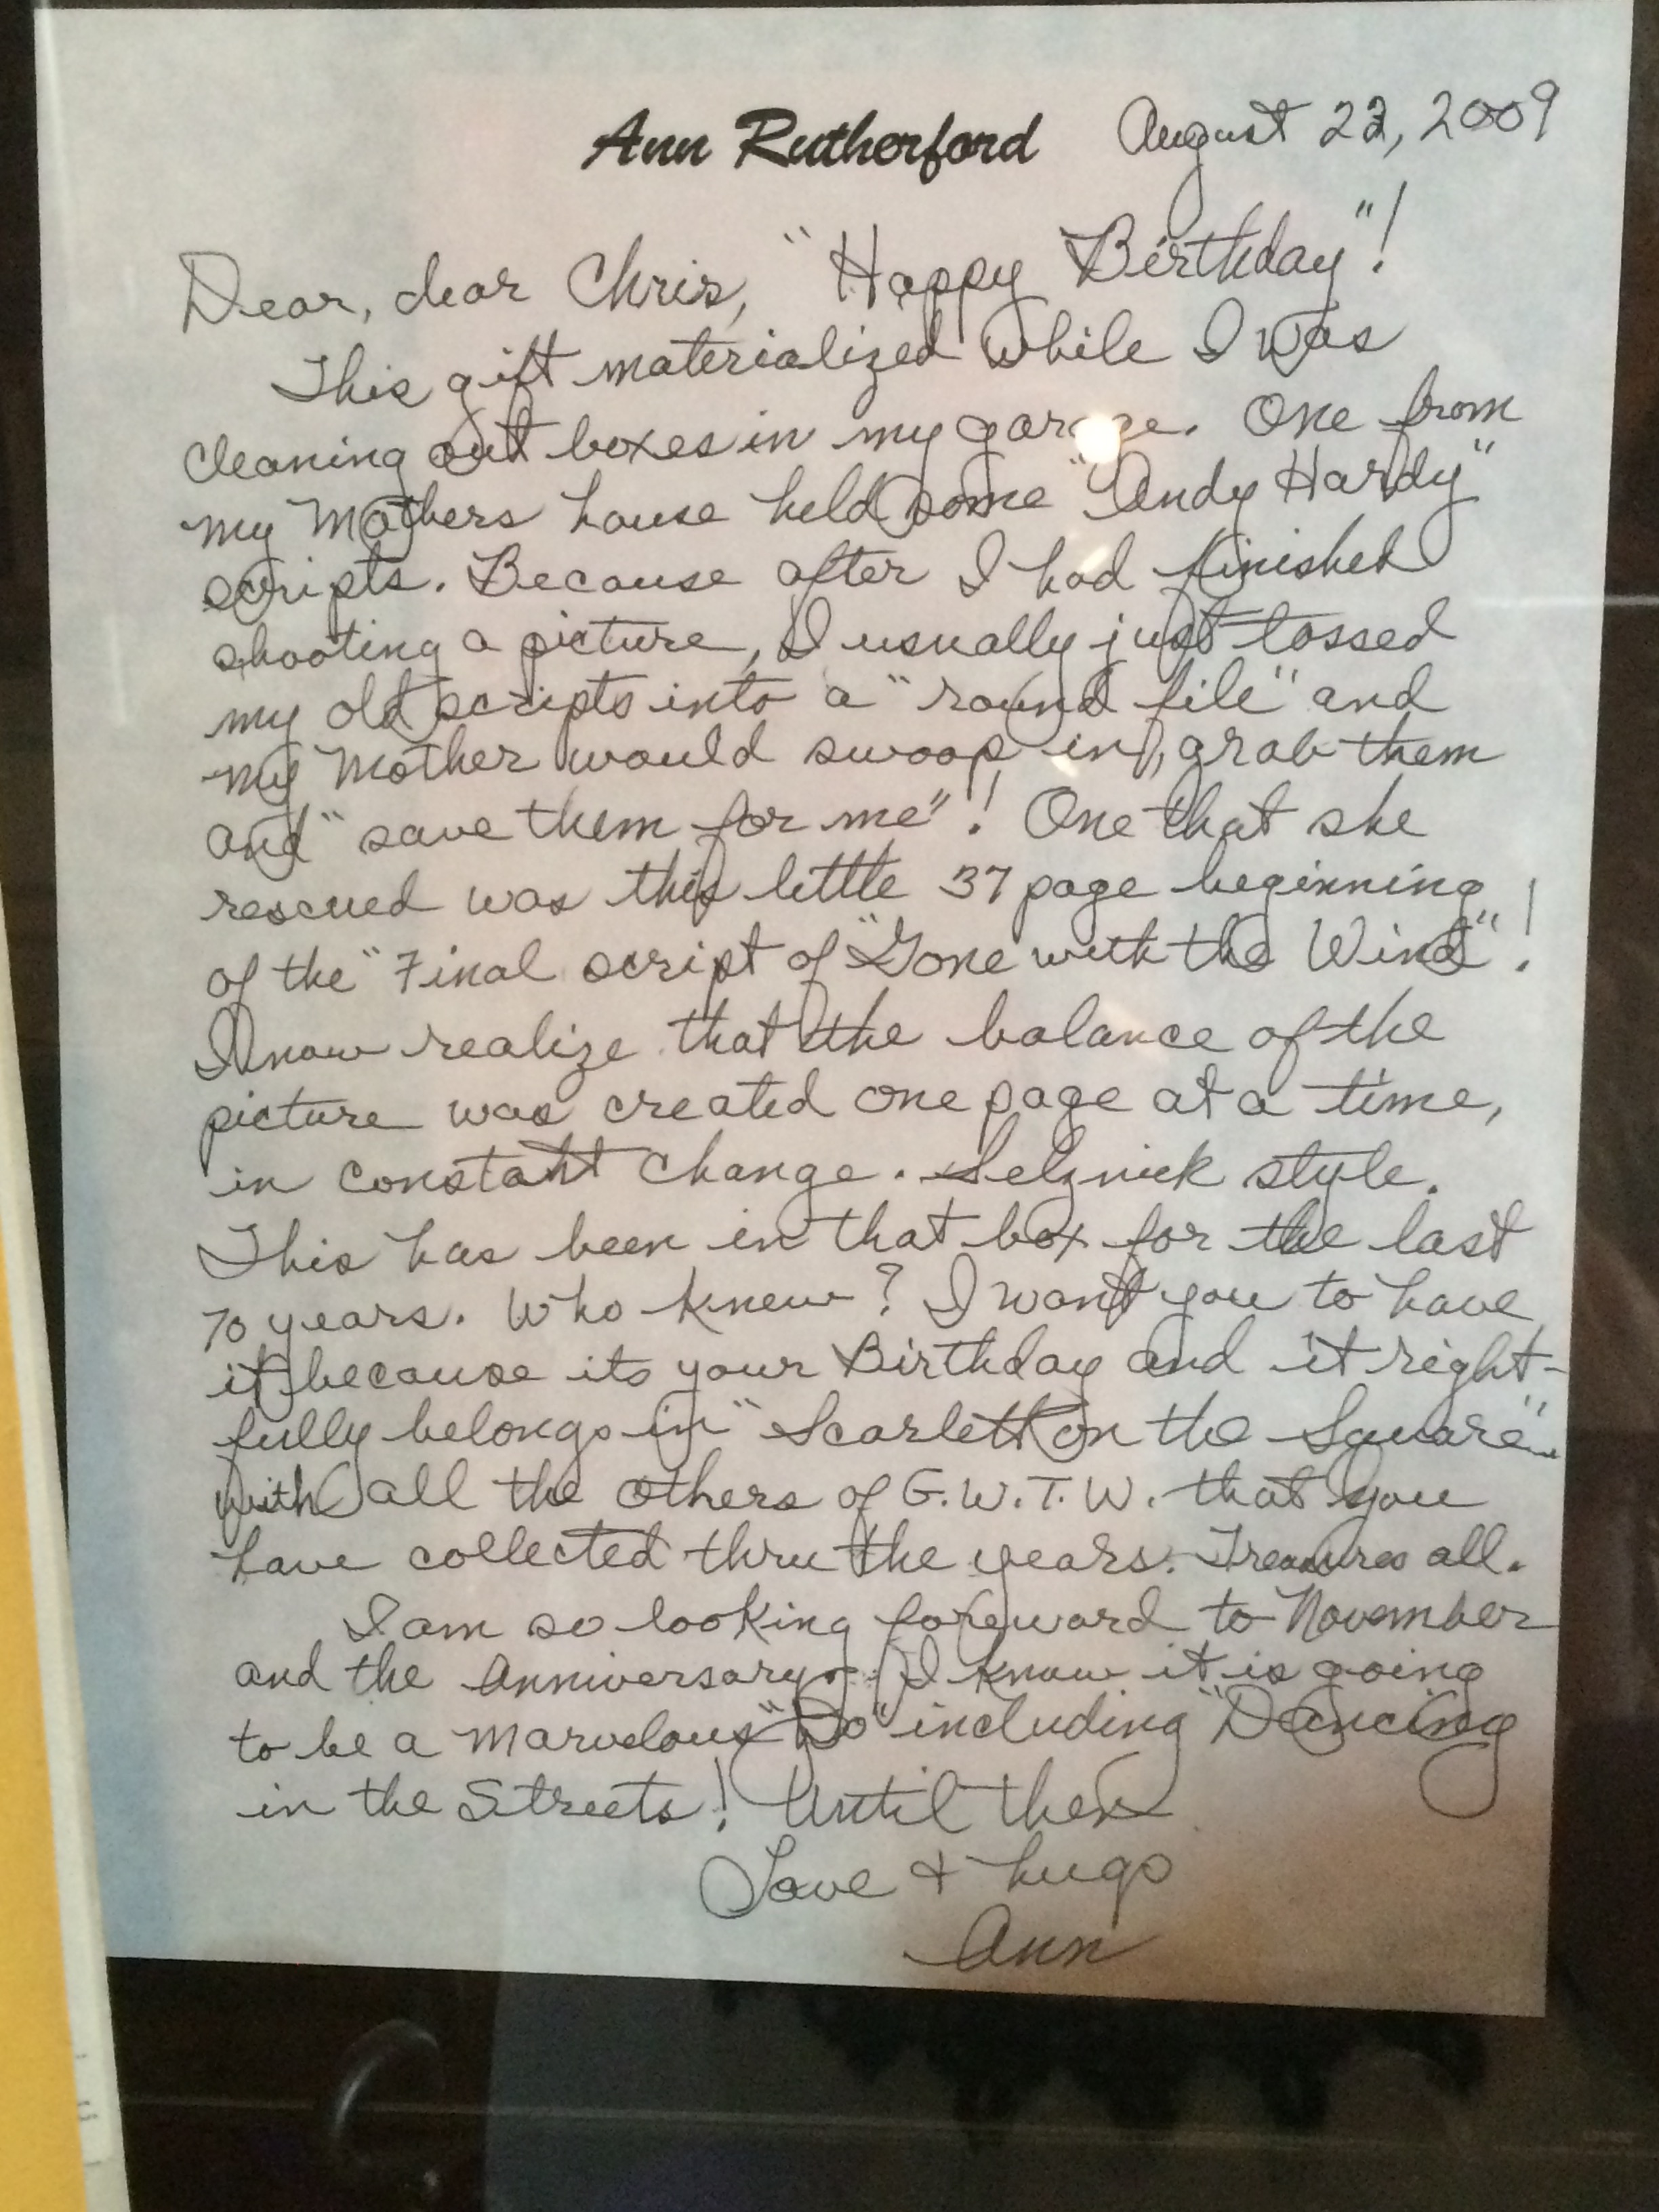 Ann Rutherford August 22, 2009
Dear, dear Chris, "Happy Birthday"!
This gift materialized while I was
cleaning out boxes in my garage. One from
my Mothers house held some "Andy Hardy"
scripts. Because after I had finished
shooting a picture, I usually just tossed
my old scripts into a "round file" and
my Mother would swoop in, grab them
and "save them for me"! One that she
rescued was this little 37 page beginning
of the "Final script of "Gone with the Wind"!
I now realize that the balance of the
picture was created one page at a time,
in constant change. Selznick style.
This has been in that box for the last
70 years. Who knew? I want you to have
it because its your Birthday and it right-
fully belongs in "Scarlett on the Square"
with all the others of G.W.T.W. that you
have collected thru the years. Treasures all.
I am so looking foreward to November
and the Anniversary. I know it is going
to be a marvelous "Do" including "Dancing
in the Streets! Until then
Love + hugs
Ann